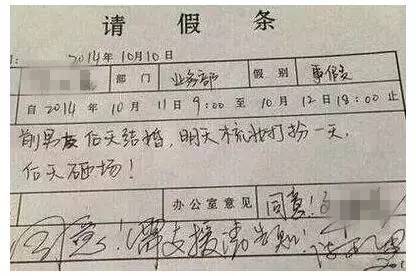 请假条
2014年10月10日
部门 业务部 假别 事假
自2014年10月11日9:00至10月12日18:00止
前男友后天结婚,明天梳妆打扮一天,
后天砸场!
办公室意见 同意!
同意!需支援请告知!